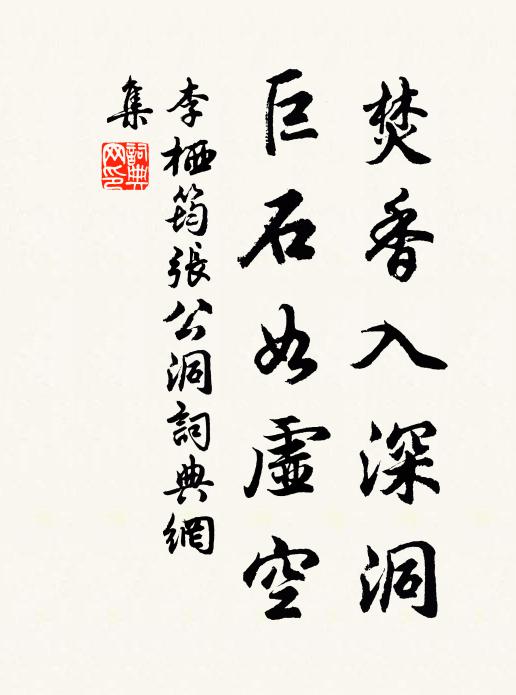 焚香入深洞
巨石如虛空
李栖筠張公洞詞典網
集
詞典網印